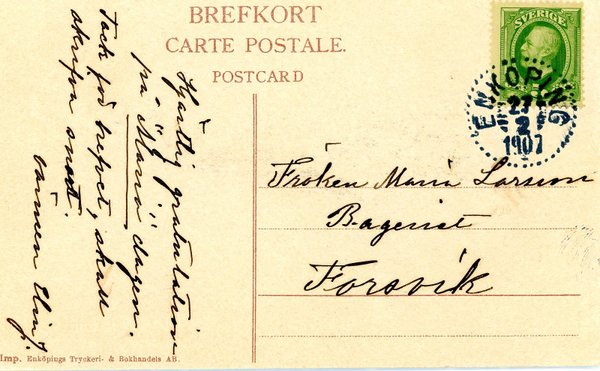 BREFKORT
CARTE POSTALE.
POSTCARD
SVERIGE
ENKÖPING
27
2
1907
Hjärtlig gratulation
på "Maria" dagen.
Tack för brefvet, skall
skrifva snart.
vännen Elin
Fröken Maria Larsson
Bageriet
Forsvik
Imp. Enköpings Tryckeri- & Bokhandels AB.